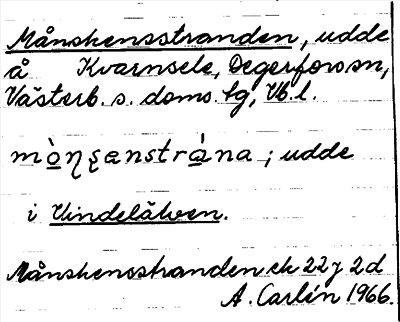 Månskensstranden, udde
å Kvarnsele, Degerforssn,
Västerb. s. doms. tg, Vb. l.
mò̱ŋʂenstrá̱na ; udde
i Vindelälven.
Månskensstranden ek 22 j 2 d
A. Carlén 1966.